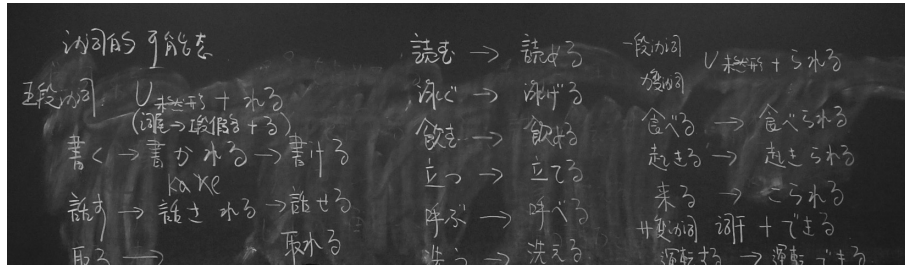 动词的可能态
五段动词 V未然形+れる
(词尾→え段假名+る)
書く→書かれる→書ける
ka ke
話す→話される→話せる
取る→ 取れる
読む→読める
泳ぐ→泳げる
飲む→飲める
立つ→立てる
呼ぶ→呼べる
洗う→洗える
一段动词
カ变动词 V未然形+られる
食べる→食べられる
起きる→起きられる
来る→こられる
サ变动词 词干+できる
運転する→運転できる